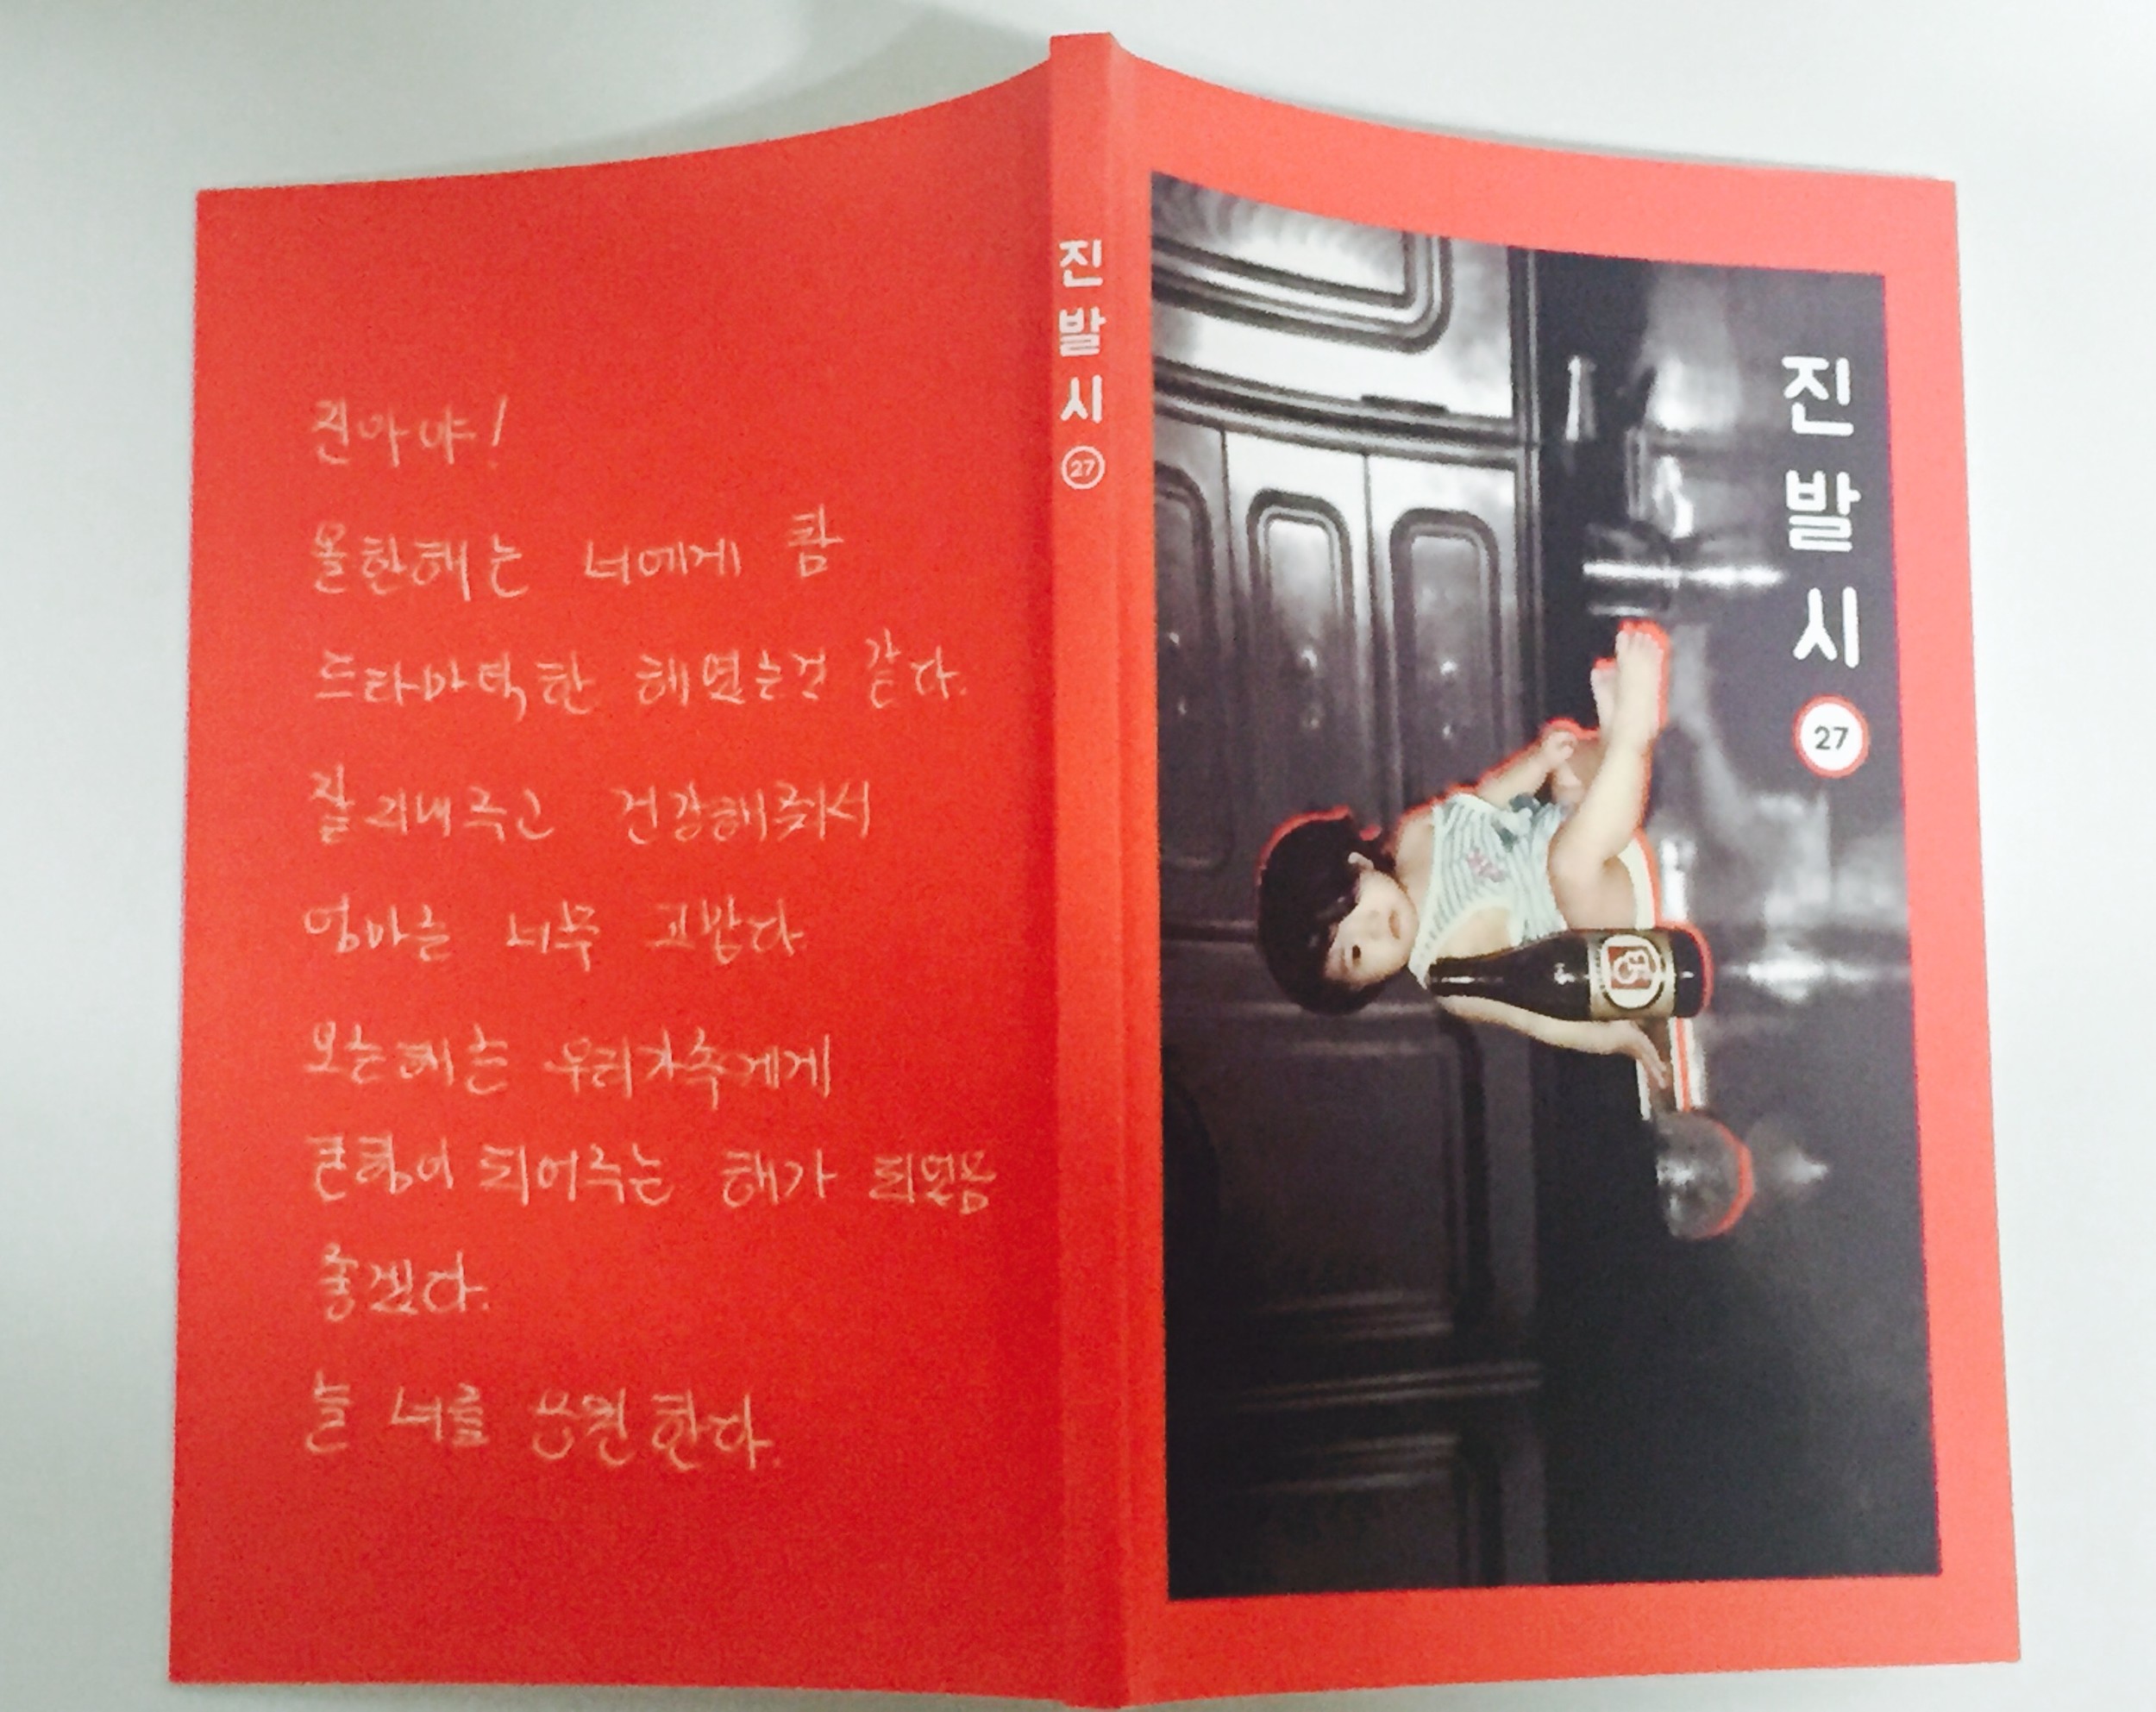 진아야!
올한해는 너에게 참
드라마틱한 해였는것 같다.
잘지내주고 건강해줘서
엄마는 너무 고맙다.
오는해는 우리가족에게
큰힘이 되어주는 해가 되였음
좋겠다.
늘 너를 응원한다.
진발시 27
진발시
27